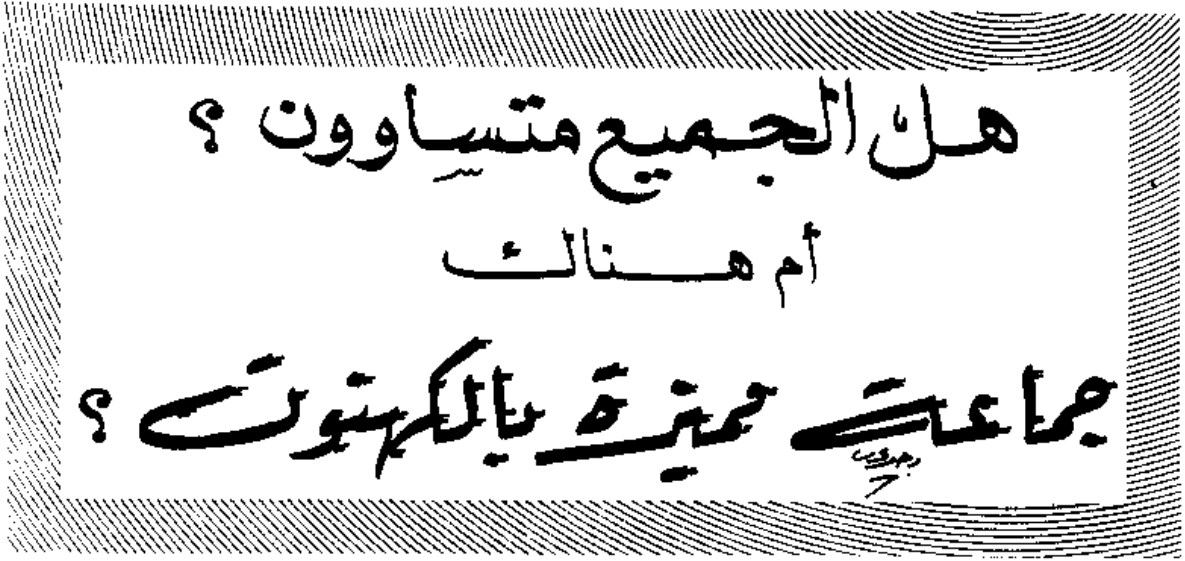 هل الجميع متساوون ؟
أم هناك
جماعة مميزة بالكهنوت ؟